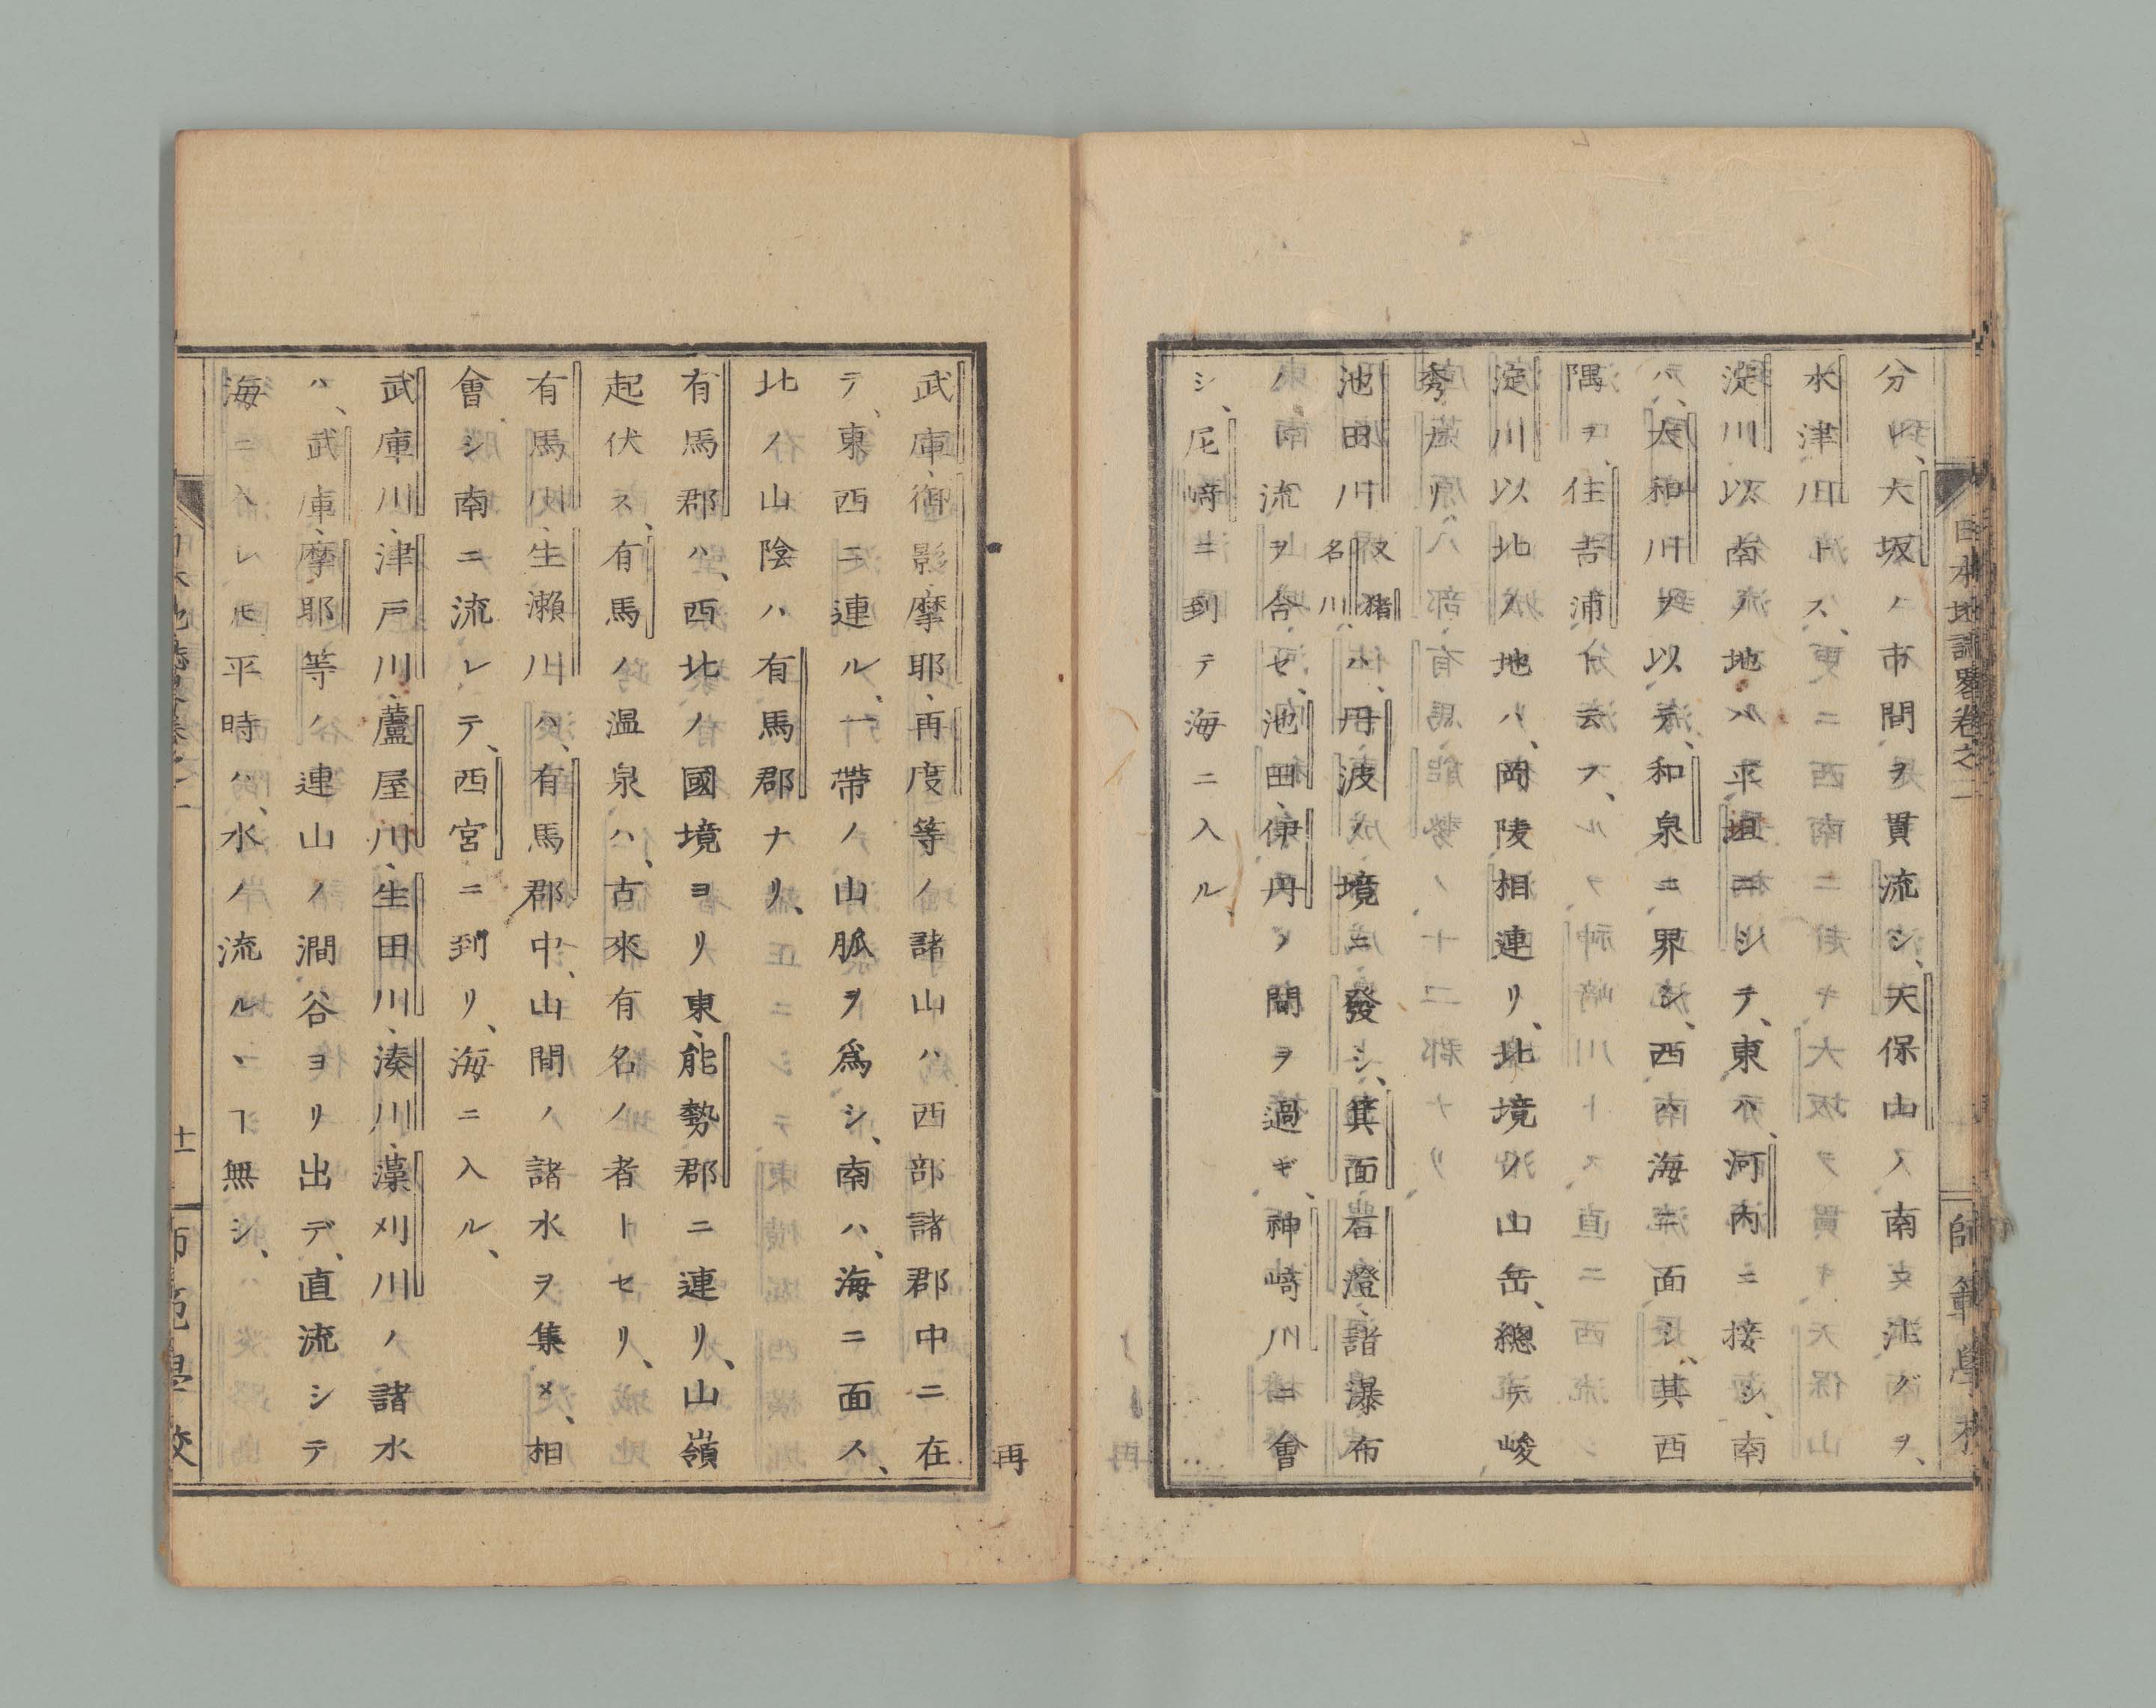 日本地誌畧卷之一
師範學校
分レ、大坂ノ市間ヲ貫流シ、天保山ノ南ニ注グヲ、
木津川トス、
淀川以南ノ地ハ、平坦ニシテ、東ハ、河内ニ接シ、南
ハ、大和川ヲ以テ、和泉ニ界シ、西ハ海ニ面シ、其西
隅ヲ、住吉浦ト云フ、
淀川以北ノ地ハ、岡陵相連リ、北境ノ山岳、總テ峻
秀ナリ、
池田川又猪名川ハ、丹波ノ境ニ發シ、箕面、石澄、諸瀑布
ノ南流ヲ合セ、池田、伊丹ノ間ヲ過ギ、神﨑川ニ會
シ、尼﨑ニ到テ海ニ入ル、
武庫、御影、摩耶、再度等ノ諸山ハ西部諸郡中ニ在
テ、東西ニ連ル、一帶ノ山脈ヲ爲シ、南ハ、海ニ面ス、
北ノ山陰ハ有馬郡ナリ、
有馬郡ハ、西北ノ國境ヨリ東、能勢郡ニ連リ、山嶺
起伏ス、有馬ノ温泉ハ、古來有名ノ者トセリ、
有馬川、生瀬川ハ、有馬郡中、山間ノ諸水ヲ集メ、相
會シ南ニ流レテ、西宮ニ到リ、海ニ入ル、
武庫川、津戸川、蘆屋川、生田川、湊川、藻刈川ノ諸水
ハ、武庫、摩耶等ノ連山ノ澗谷ヨリ出デ、直流シテ
海ニ入レモ平時ハ、水ノ流ル、ヿ無シ、
日本地誌畧卷之一
十一
師範學校
再